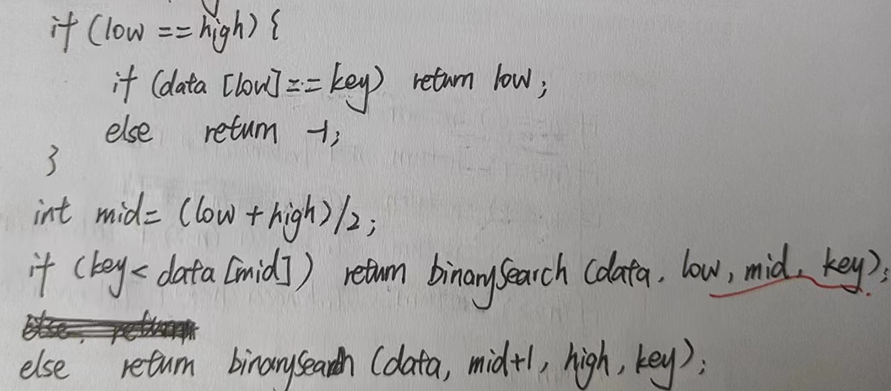 if (low == high) {
if (data [low] == key) return low;
else return -1;
}
int mid = (low + high)/2;
if (key < data [mid]) return binarySearch (data, low, mid, key);
else return binarySearch (data, mid+1, high, key);